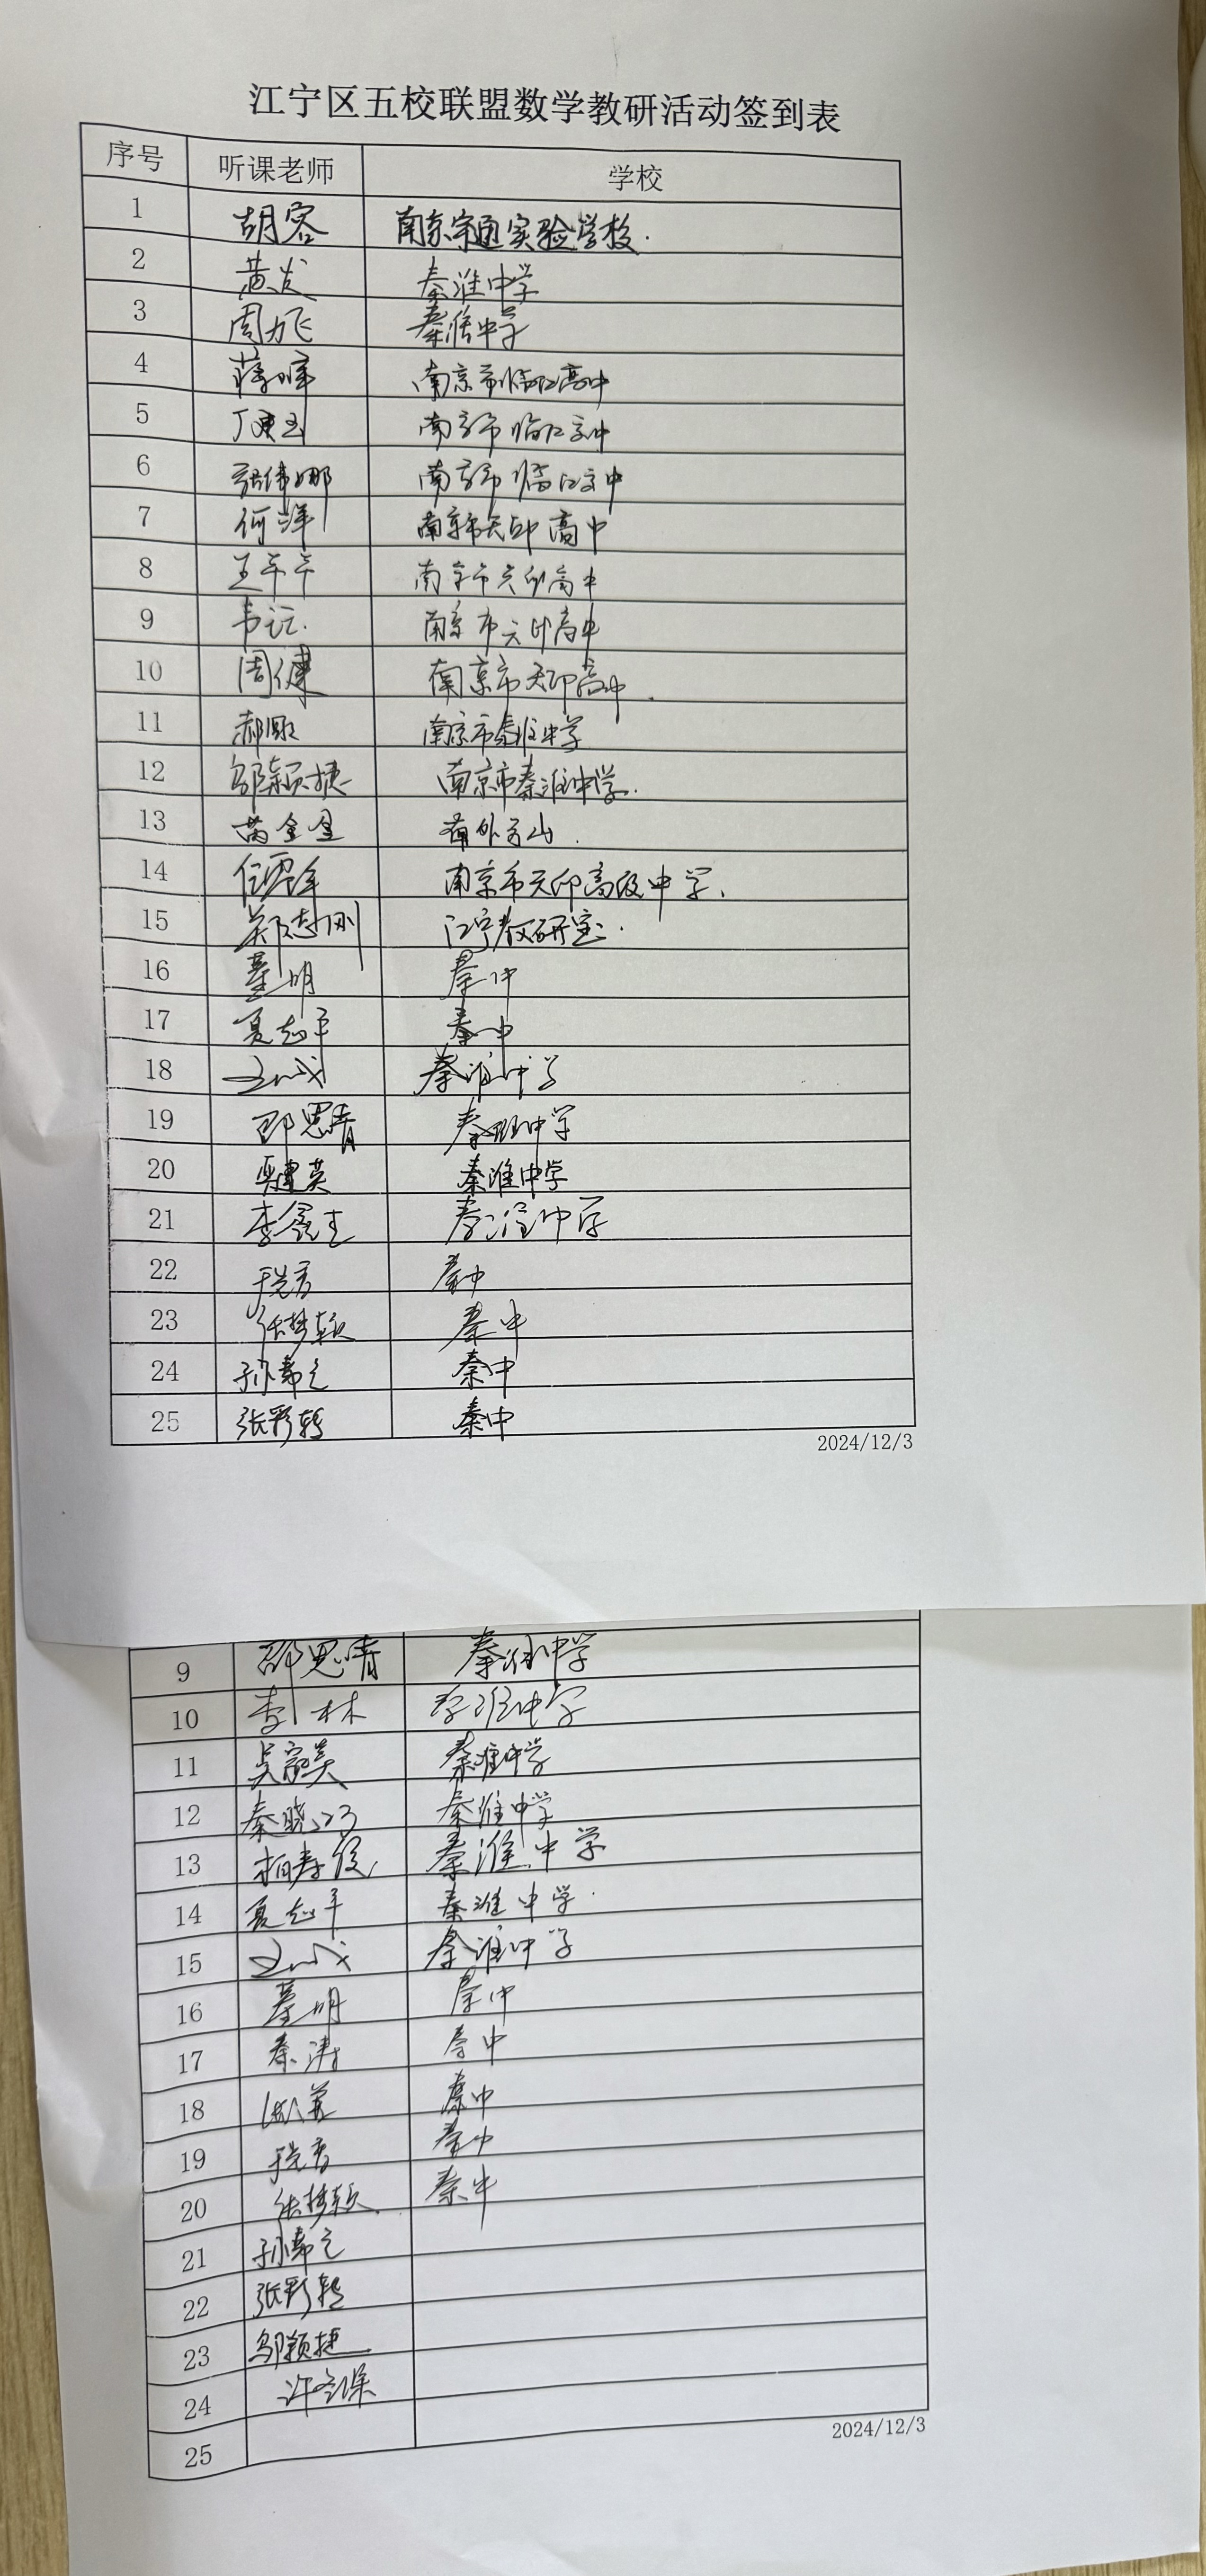 江宁区五校联盟数学教研活动签到表
序号 听课老师 学校
1 胡容 南京宇通实验学校.
2 黄发 秦淮中学
3 周力飞 秦淮中学
4 蒋晖 南京市临江高中
5 丁建玉 南京市临江高中
6 张伟娜 南京市临江高中
7 何洋 南京市天印高中
8 王苹苹 南京市天印高中
9 韦 南京市天印高中
10 周健 南京市天印高中.
11 郝 南京市秦淮中学
12 邬颖捷 南京市秦淮中学.
13 黄金金 南外方山.
14 任 南京市天印高级中学.
15 郑志刚 江宁教研室.
16 明 秦中
17 夏志平 秦中
18 秦淮中学
19 邵思青 秦淮中学
20 吴建英 秦淮中学
21 李 秦淮中学
22 秦中
23 张梦颖 秦中
24 孙希 秦中
25 张彩 秦中
2024/12/3
9 邵思青 秦淮中学
10 李林 秦淮中学
11 吴 秦淮中学
12 秦晓 秦淮中学
13 柏寿俊 秦淮中学
14 夏志平 秦淮中学.
15 秦淮中学
16 明 秦中
17 秦涛 秦中
18 秦中
19 秦中
20 张梦颖. 秦中
21 孙希
22 张彩
23 邬颖捷
24 许
25
2024/12/3